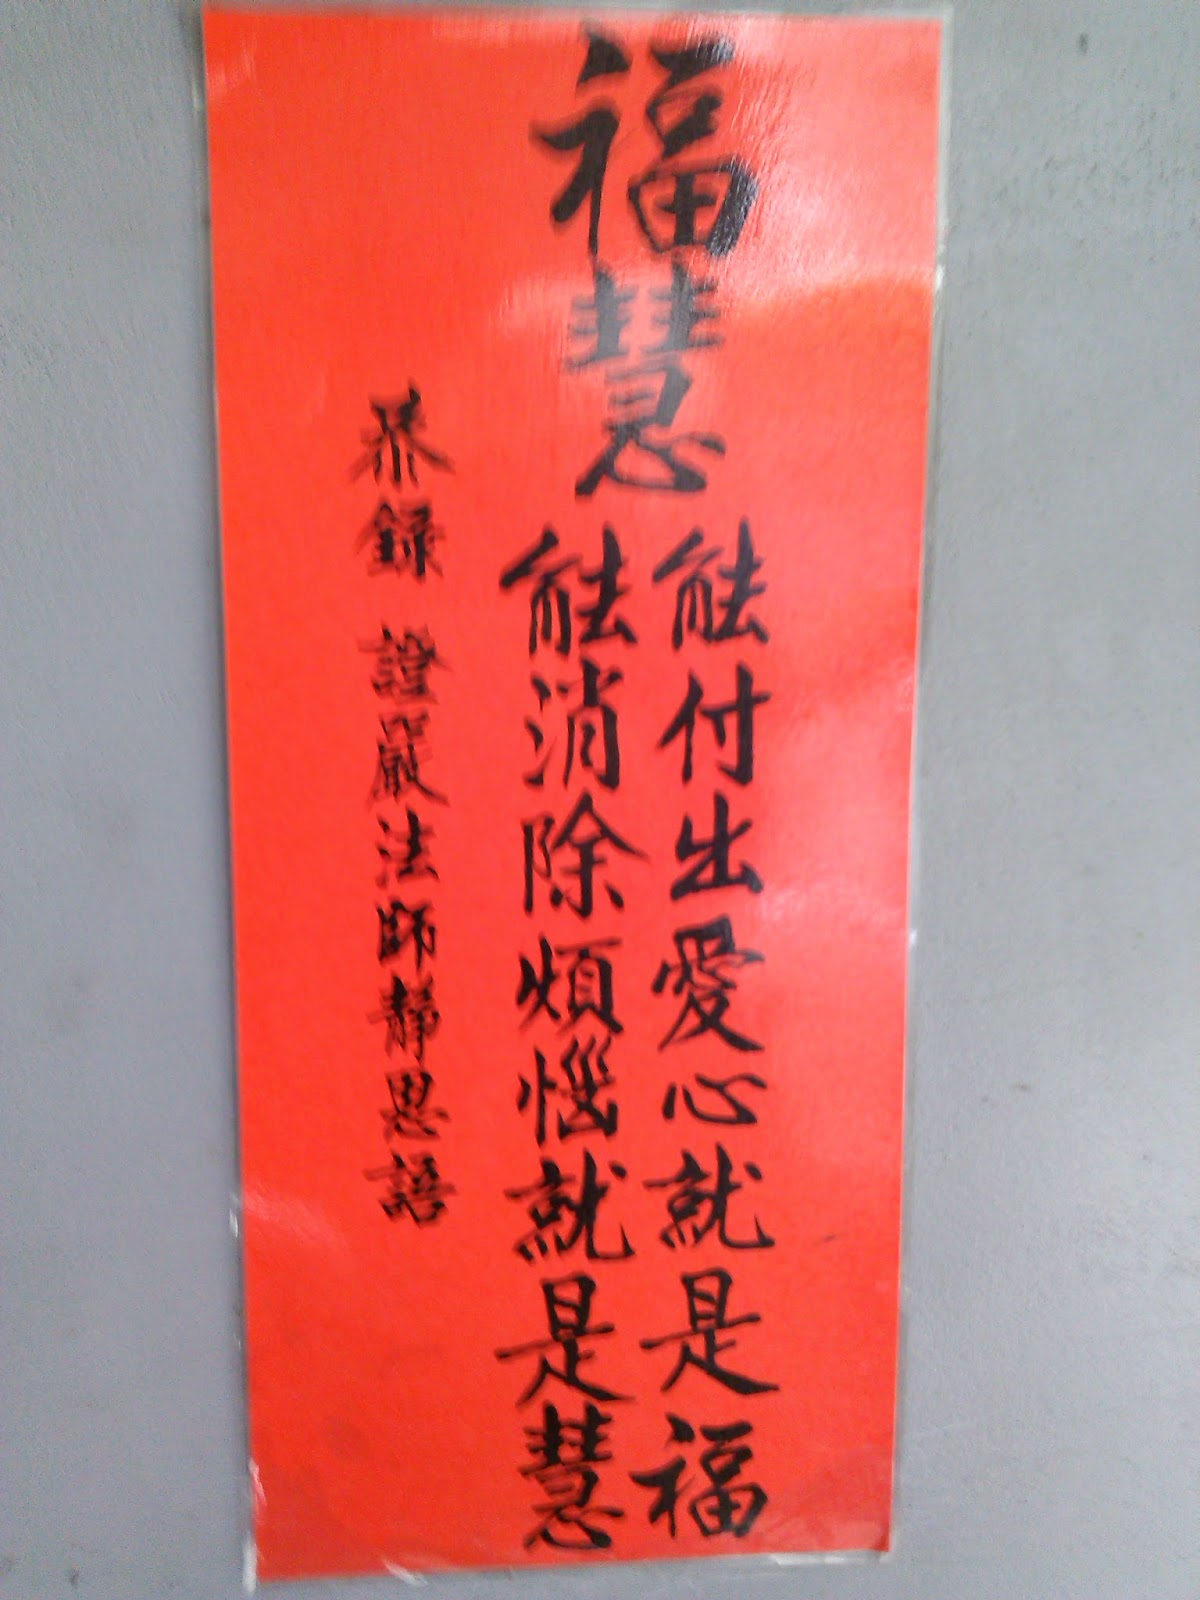 福慧
能付出愛心就是福
能消除煩惱就是慧
恭錄 證嚴法師靜思語